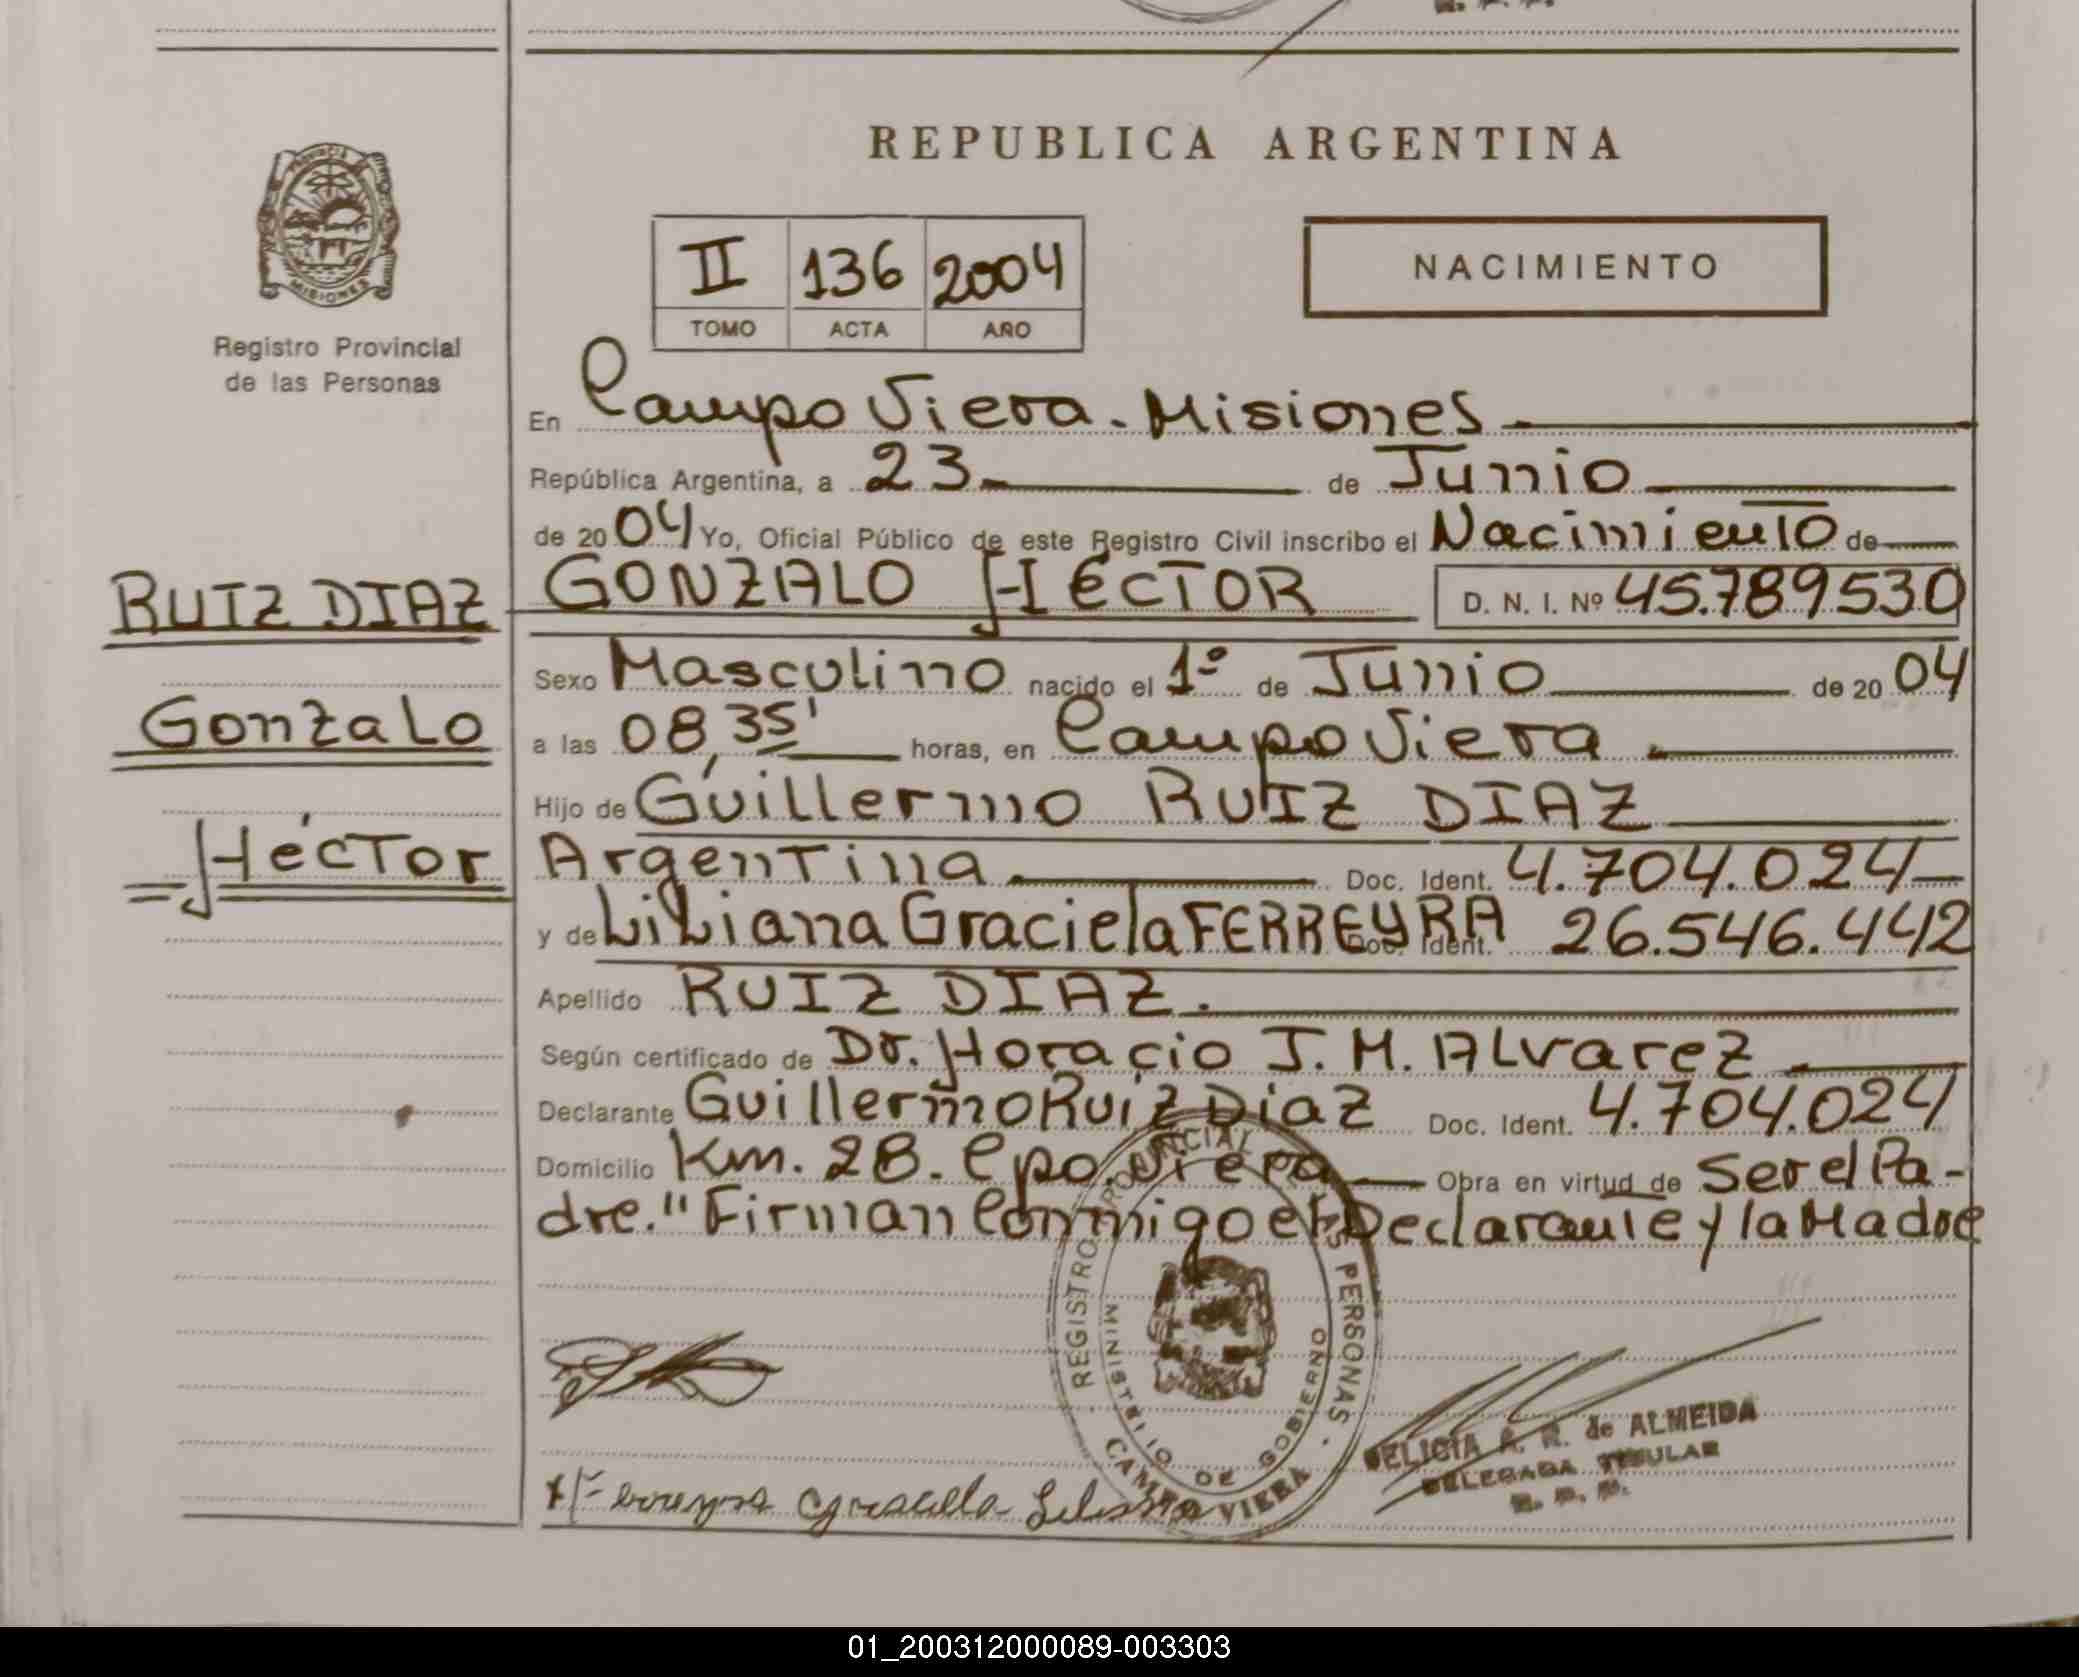 REPUBLICA ARGENTINA
PROVINCIA
MISIONES
Registro Provincial
de las Personas
II 136 2004
TOMO ACTA AÑO
NACIMIENTO
En Campo Viera. Misiones
República Argentina, a 23 de Junio
de 2004 Yo, Oficial Público de este Registro Civil inscribo el Nacimiento de
RUIZ DIAZ
Gonzalo
Héctor
GONZALO HÉCTOR D. N. I. Nº 45.789530
Sexo Masculino nacido el 1º de Junio de 2004
a las 08,35' horas, en Campo Viera.
Hijo de Guillermo RUIZ DIAZ
Argentina Doc. Ident. 4.704.024
y de Liliana Graciela FERREYRA Doc. Ident. 26.546.442
Apellido RUIZ DIAZ.
Según certificado de Dr. Horacio J. M. Alvarez
Declarante Guillermo Ruiz Diaz Doc. Ident. 4.704.024
Domicilio Km. 28. Cpo. Viera Obra en virtud de Ser el Pa-
dre." Firman Conmigo el Declarante y la Madre
REGISTRO PROVINCIAL DE LAS PERSONAS
MINISTERIO DE GOBIERNO
CAMPO VIERA
DELICIA A. R. de ALMEIDA
DELEGADA TITULAR
R. P. P.
Ferreyra Graciela Liliana
01_200312000089-003303